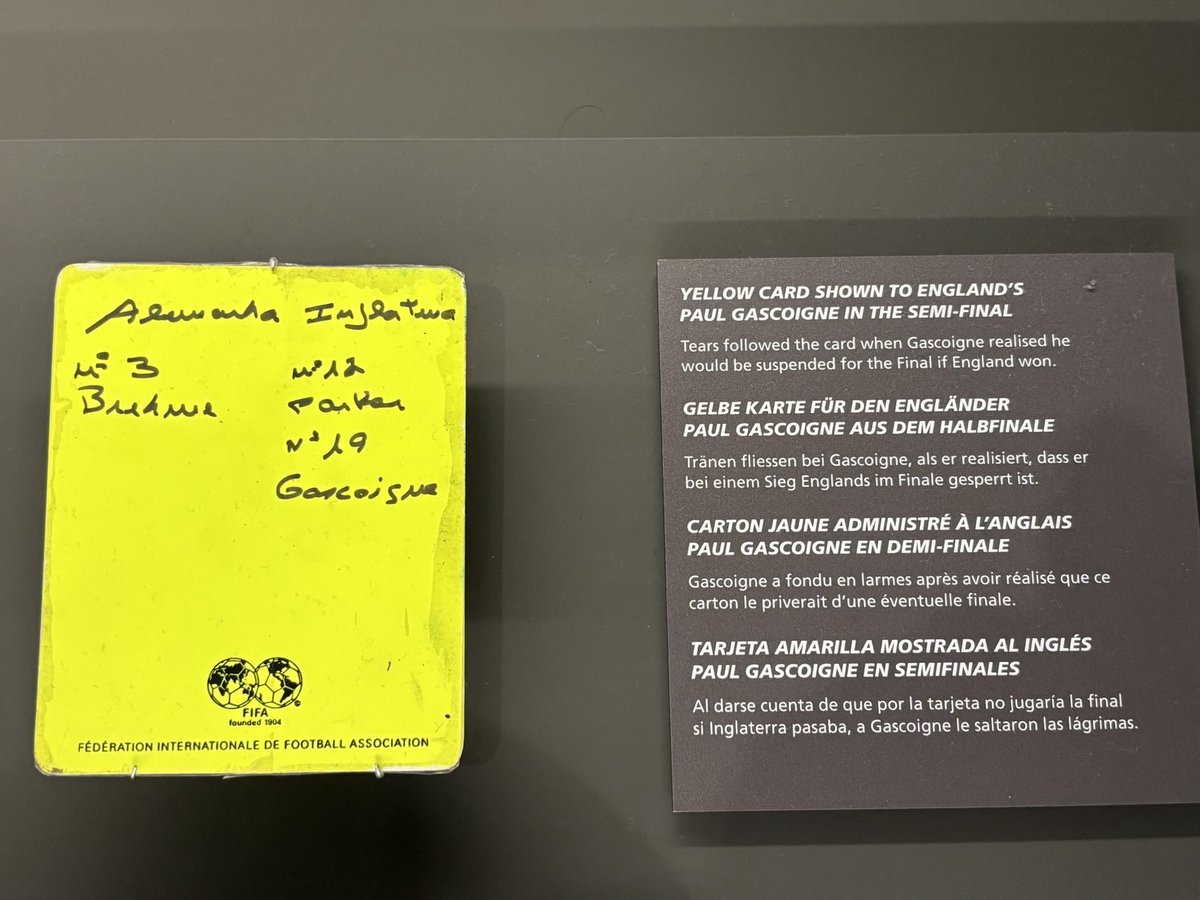 Alemanha Inglaterra
Nº 3 Nº 12
Brehme Parker
Nº 19
Gascoigne
FIFA
founded 1904
FÉDÉRATION INTERNATIONALE DE FOOTBALL ASSOCIATION
YELLOW CARD SHOWN TO ENGLAND'S
PAUL GASCOIGNE IN THE SEMI-FINAL
Tears followed the card when Gascoigne realised he
would be suspended for the Final if England won.
GELBE KARTE FÜR DEN ENGLÄNDER
PAUL GASCOIGNE AUS DEM HALBFINALE
Tränen fliessen bei Gascoigne, als er realisiert, dass er
bei einem Sieg Englands im Finale gesperrt ist.
CARTON JAUNE ADMINISTRÉ À L'ANGLAIS
PAUL GASCOIGNE EN DEMI-FINALE
Gascoigne a fondu en larmes après avoir réalisé que ce
carton le priverait d'une éventuelle finale.
TARJETA AMARILLA MOSTRADA AL INGLÉS
PAUL GASCOIGNE EN SEMIFINALES
Al darse cuenta de que por la tarjeta no jugaría la final
si Inglaterra pasaba, a Gascoigne le saltaron las lágrimas.